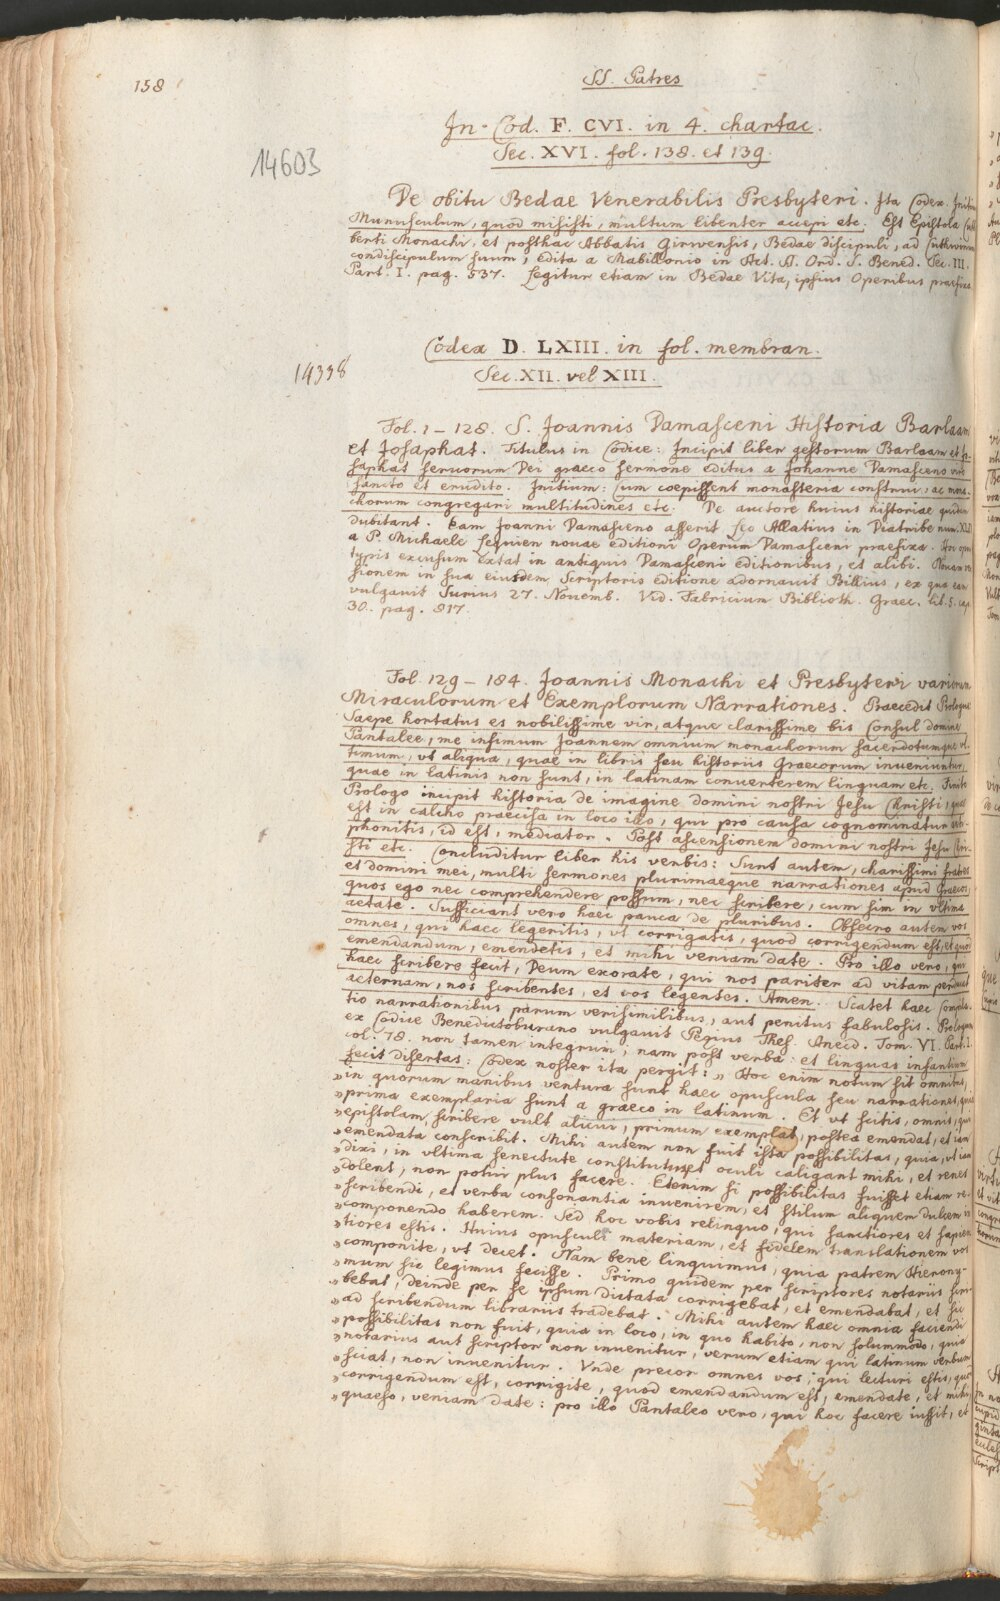 158
SS. Patres
In Cod. F. CVI. in 4. chartac.
Sec. XVI. fol. 138. et 139.
14603
De obitu Bedae Venerabilis Presbyteri. Ita Codex. Initium
Munusculum, quod misisti, multum libenter accepi etc. Est Epistola Cuth
berti Monachi, et posthac Abbatis Girwensis, Bedae discipuli, ad Cuthwinum
condiscipulum suum, edita a Mabillonio in Act. SS. Ord. S. Bened. Sec. III.
Part. I. pag. 537. Legitur etiam in Bedae Vita, ipsius Operibus praefixa
Codex D. LXIII. in fol. membran.
14338
Sec. XII. vel XIII.
Fol. 1 – 128. S. Joannis Damasceni Historia Barlaam
et Josaphat. Titulus in Codice: Incipit liber gestorum Barlaam et Jo
saphat servorum Dei graeco sermone editus a Johanne Damasceno viro
sancto et erudito. Initium: Cum coepissent monasteria construi, ac mona-
chorum congregari multitudines etc. De auctore huius historiae quidam
dubitant. Eam Joanni Damasceno asserit Leo Allatius in Diatribe num. XLI
a P. Michaele Lequien novae editioni Operum Damasceni praefixa. Hoc opus
typis excusum extat in antiquis Damasceni editionibus, et alibi. Novam ver
sionem in sua eiusdem Scriptoris editione adornavit Billius, ex qua eam
vulgavit Surius 27. Novemb. Vid. Fabricium Biblioth. Graec. lib. 5. cap.
30. pag. 817.
Fol. 129 – 184. Joannis Monachi et Presbyteri variorum
Miraculorum et Exemplorum Narrationes. Praecedit Prologus
Saepe hortatus es nobilissime vir, atque clarissime bis Consul domine
Pantalee, me infimum Joannem omnium monachorum sacerdotumque ul-
timum, vt aliqua, quae in libris seu historiis Graecorum inveniuntur,
quae in latinis non sunt, in latinam converterem linguam etc. Finito
Prologo incipit historia de imagine domini nostri Jesu Christi, quae
est in calcho praecisa in loco illo, qui pro causa cognominatur an-
phonitis, id est, mediator. Post ascensionem domini nostri Jesu Chri-
sti etc. Concluditur liber his verbis: Sunt autem, charissimi fratres
et domini mei, multi sermones plurimaeque narrationes apud Graecos,
quos ego nec comprehendere possum, nec scribere, cum sim in vltima
aetate. Sufficiant vero haec pauca de pluribus. Obsecro autem vos
omnes, qui haec legeritis, vt corrigatis, quod corrigendum est, et quod
emendandum, emendetis, et mihi veniam date. Pro illo vero, qui
haec scribere fecit, Deum exorate, qui nos pariter ad vitam perducat
aeternam, nos scribentes, et vos legentes. Amen. Scatet haec Compila-
tio narrationibus parum verisimilibus, aut penitus fabulosis. Prologum
ex Codice Benedictoburano vulgavit Pezius Thes. Anecd. Tom. VI. Part. I.
col. 78. non tamen integrum; nam post verba: et linguas infantium
fecit disertas: Codex noster ita pergit: „ Hoc enim notum sit omnibus,
„in quorum manibus ventura sunt haec opuscula seu narrationes, quia
„prima exemplaria sunt a graeco in latinum. Et vt scitis, omnis, qui
„epistolam scribere vult alicui, primum exemplat, postea emendat, et iam
„emendata conscribit. Mihi autem non fuit ista possibilitas, quia, vt iam
„dixi, in vltima senectute constitutus et oculi caligant mihi, et renes
„dolent, non potui plus facere. Etenim si possibilitas fuisset etiam re-
„scribendi, et verba consonantia invenirem, et stilum aliquem dulcem in
„componendo haberem. Sed hoc vobis relinquo, qui sanctiores et sapien
„tiores estis. Huius opusculi materiam, et fidelem translationem vos
„componite, vt decet. Nam bene linquimus, quia patrem Hierony-
„mum sic legimus fecisse. Primo quidem per scriptores notariis scri-
„bebat, deinde per se ipsum dictata corrigebat, et emendabat, et sic
„ad scribendum librariis tradebat. Mihi autem haec omnia faciendi
„possibilitas non fuit, quia in loco, in quo habito, non solummodo, quia
„notarius aut scriptor non invenitur, verum etiam qui latinum verbum
„sciat, non invenitur. Vnde precor omnes vos, qui lecturi estis, quod
„corrigendum est, corrigite, quod emendandum est, emendate, et mihi,
„quaeso, veniam date: pro illo Pantaleo vero, qui hoc facere iussit, et